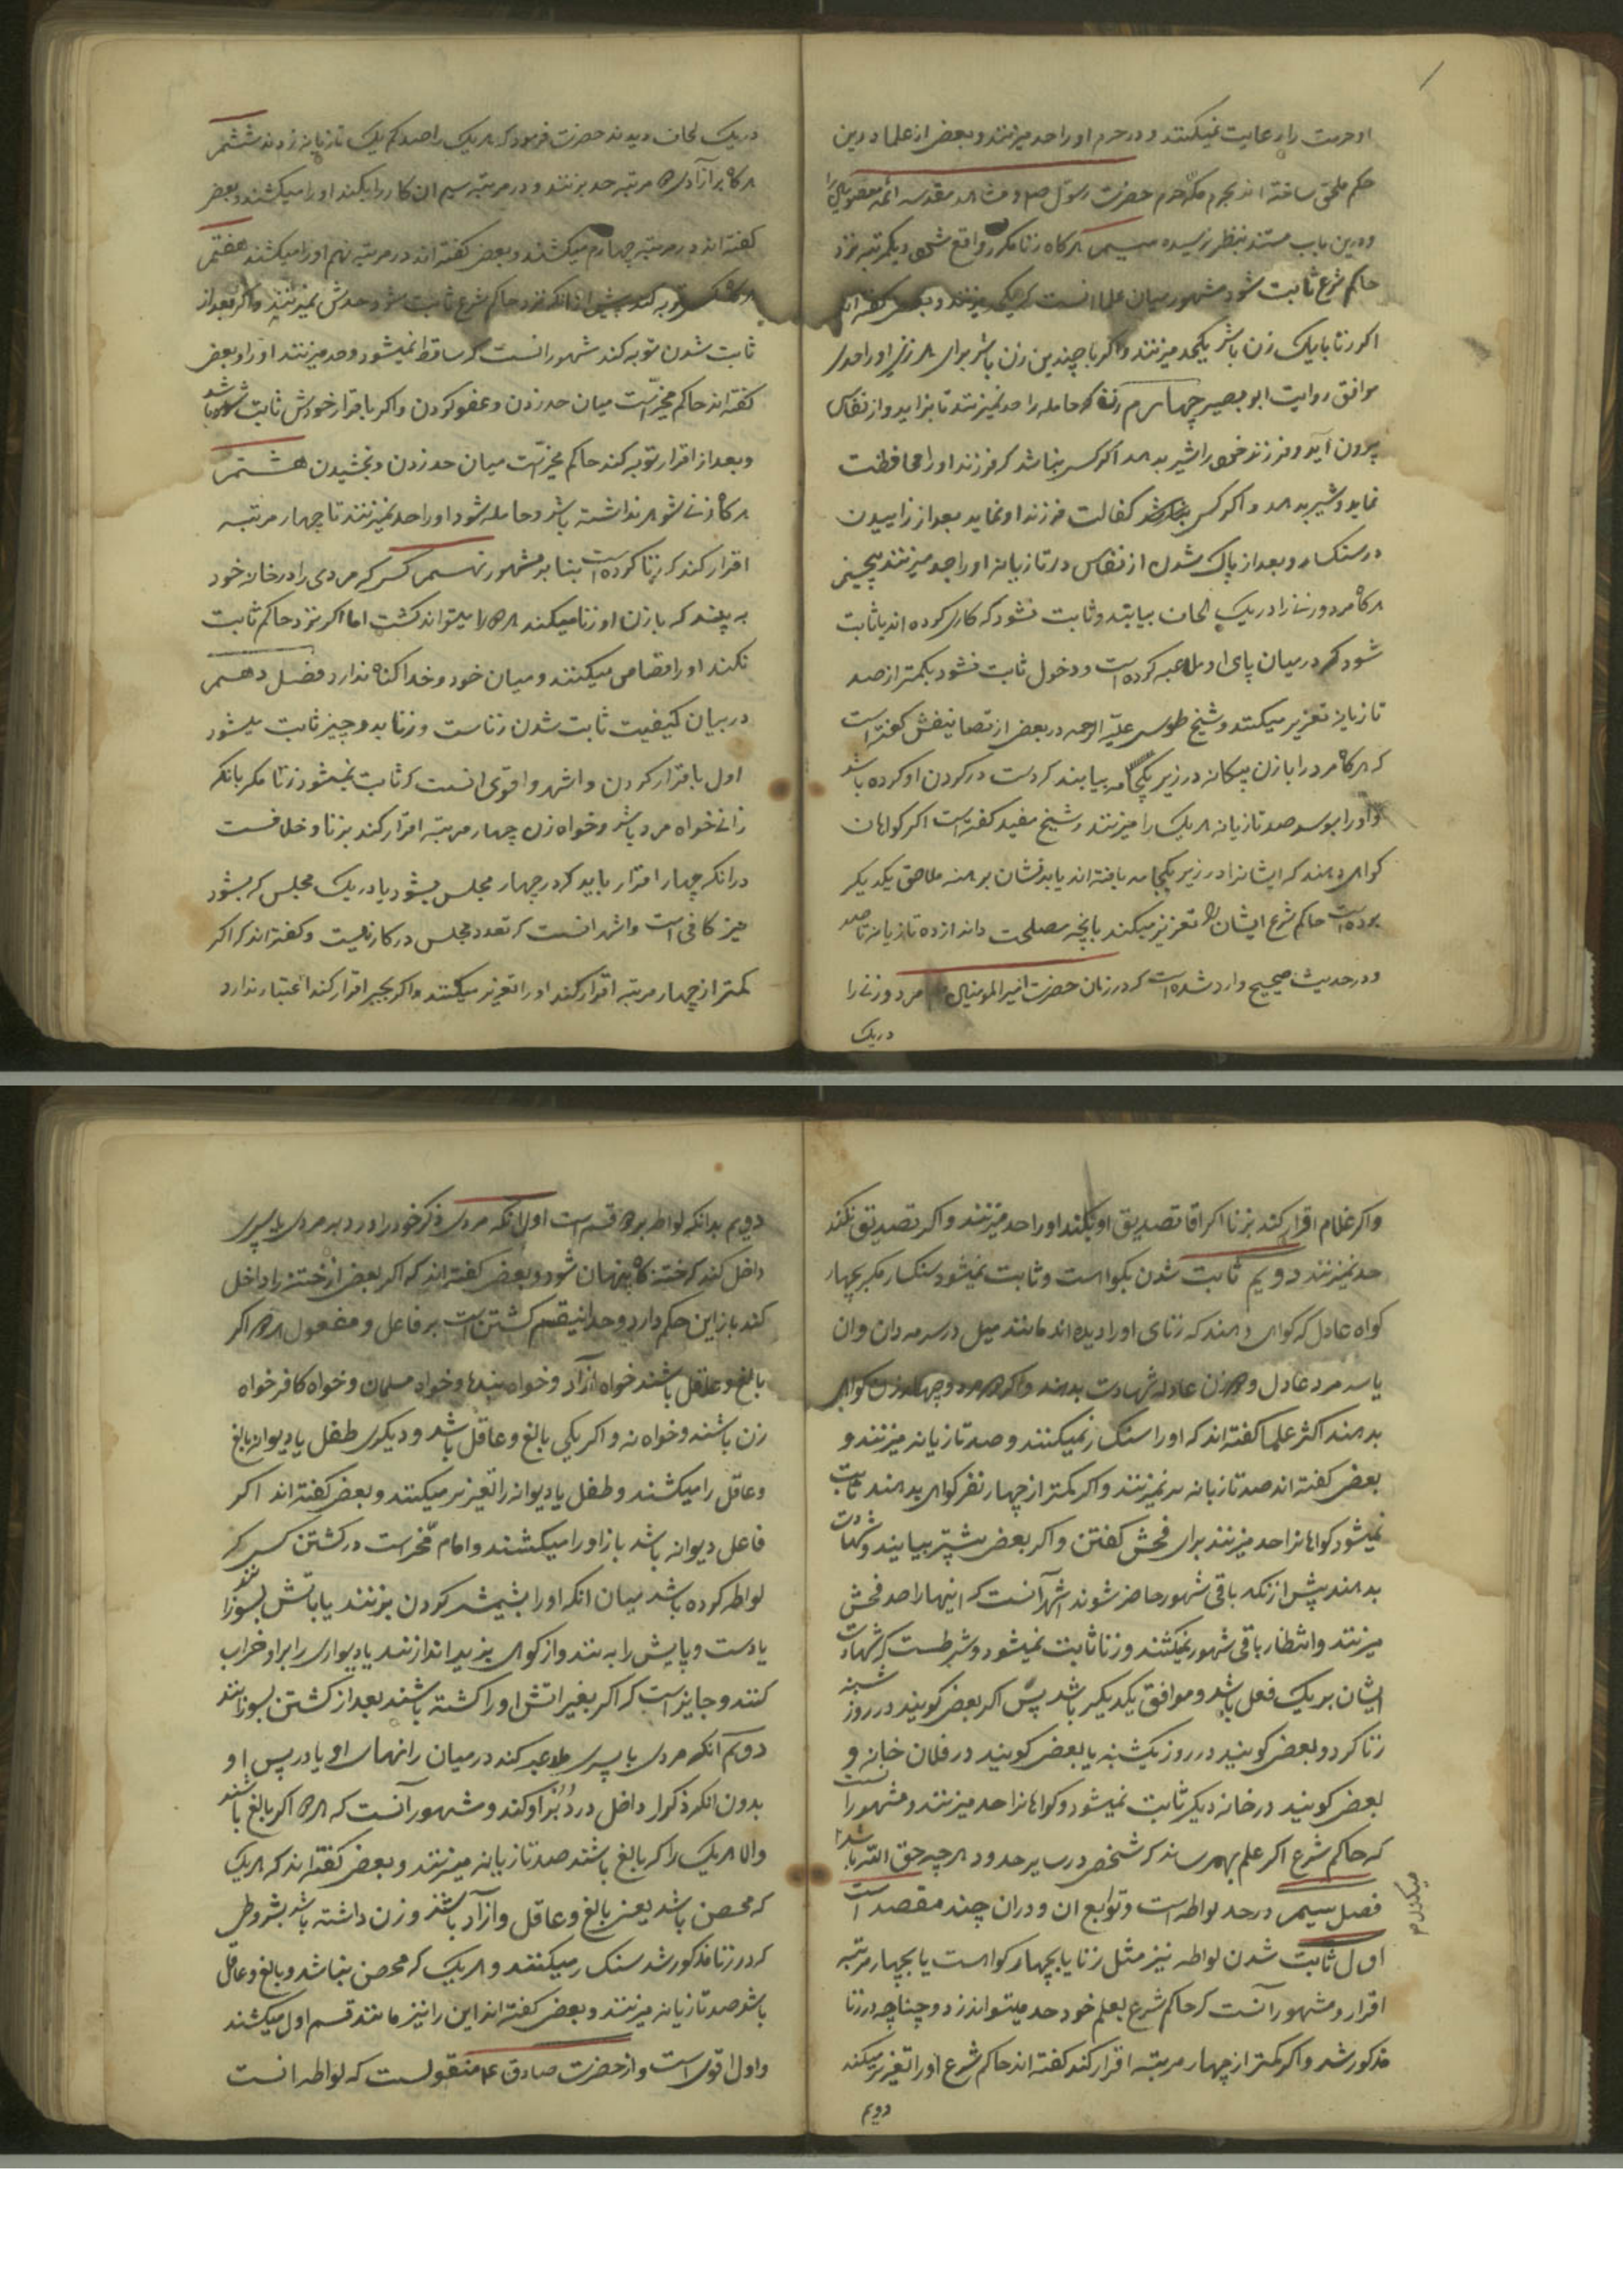 او حرمت را رعایت نمیکنند و در حرم او را حد میزنند و بعضی از علما درین
حکم ملحق ساخته اند بحرم مکه حرم حضرت رسول صلعم و مشاهد مقدسه ائمه معصومین را
و درین باب مستند بنظر نرسیده سیم هرگاه زنا مکرر واقع شود و یکمرتبه نزد
حاکم شرع ثابت شود مشهور میان علما انست که یکحد میزنند و بعضی گفته اند
اکر زنا با یک زن باشد یکحد میزنند و اکر با چندین زن باشد برای هر زنی او را حدی
موافق روایت ابو بصیر چهارم زن حامله را حد نمیزنند تا بزاید و از نفاس
بیرون آید و فرزند خود را شیر بدهد اکر کسی نباشد که فرزند او را محافظت
نماید و شیر بدهد و اکر کسی باشد کفالت فرزند او نماید بعد از زاییدن
در سنکسار و بعد از پاک شدن از نفاس در تازیانه او را حد میزنند پنجم
هرکاه مرد و زنی را در یک لحاف بیابند و ثابت نشود که کاری کرده اند یا ثابت
شود که در میان پای او ملاعبه کرده است و دخول ثابت نشود بکمتر از صد
تازیانه تعزیر میکنند و شیخ طوسی علیه الرحمه در بعضی از تصانیفش گفته است
که هرکاه مرد را با زن بیکانه در زیر یکجامه بیابند که دست در کردن او کرده باشد
و او را بوسد صد تازیانه هر یک را میزنند و شیخ مفید گفته است اکر کواهان
کواهی دهند که ایشانرا در زیر یکجامه یافته اند یا بدنشان برهنه ملاصق یکدیکر
بوده است حاکم شرع ایشان را تعزیر میکند بانچه مصلحت داند از ده تازیانه تا صد
و در حدیث صحیح وارد شده است که در زمان حضرت امیر المومنین مرد و زنی را
در یک
در یک لحاف دیدند حضرت فرمود که هر یک را صد کم یک تازیانه زدند ششم
هرکاه بر آزاد سه مرتبه حد بزنند و در مرتبه سیم ان کار را بکند او را میکشند و بعضی
گفته اند در مرتبه چهارم میکشند و بعضی گفته اند در مرتبه نهم او را میکشند هفتم
هرکه توبه کند پیش از انکه نزد حاکم شرع ثابت شود حدش نمیزنند و اکر بعد از
ثابت شدن توبه کند مشهور انست که ساقط نمیشود و حد میزنند او را و بعضی
گفته اند حاکم مخیر است میان حد زدن و عفو کردن و اکر باقرار خودش ثابت شده باشد
و بعد از اقرار توبه کند حاکم مخیر است میان حد زدن و بخشیدن هشتم
هرکاه زنی شوهر نداشته باشد و حامله شود او را حد نمیزنند تا چهار مرتبه
اقرار کند که زنا کرده است بنا بر مشهور نهم کسی که مردی را در خانه خود
به بیند که با زن او زنا میکند هر دو را میتواند کشت اما اکر نزد حاکم ثابت
نکند او را قصاص میکنند و میان خود و خدا کناه ندارد فصل دهم
در بیان کیفیت ثابت شدن زناست و زنا بدو چیز ثابت میشود
اول باقرار کردن و اشهر و اقوی انست که ثابت نمیشود زنا مکر بانکه
زانی خواه مرد باشد و خواه زن چهار مرتبه اقرار کند بزنا و خلافست
در انکه چهار اقرار باید که در چهار مجلس بشود یا در یک مجلس که بشود
نیز کافی است و اشهر انست که تعدد مجلس در کار نیست و گفته اند که اکر
کمتر از چهار مرتبه اقرار کند او را تعزیر میکنند و اکر بجبر اقرار کند اعتبار ندارد
و اکر غلام اقرار کند بزنا اکر اقا تصدیق او بکند او را حد میزنند و اکر تصدیق نکند
حد نمیزنند دویم ثابت شدن بکواهست و ثابت نمیشود سنکسار مکر بچهار
کواه عادل که کواهی دهند که زنای او را دیده اند مانند میل در سرمه دان و ان
یا سه مرد عادل و دو زن عادله شهادت بدهند و اکر دو مرد و چهار زن کواهی
بدهند اکثر علما گفته اند که او را سنکسار نمیکنند و صد تازیانه میزنند و
بعضی گفته اند صد تازیانه نیز نمیزنند و اکر کمتر از چهار نفر کواهی بدهند ثابت
نمیشود کواهانرا حد میزنند برای فحش گفتن و اکر بعضی پیشتر بیایند و شهادت
بدهند پیش از انکه باقی شهود حاضر شوند اشهر آنست که اینها را حد فحش
میزنند و انتظار باقی شهود نمیکشند و زنا ثابت نمیشود و شرطست که شهادت
ایشان بر یک فعل باشد و موافق یکدیکر باشد پس اکر بعضی کویند در روز شنبه
زنا کرد و بعضی کویند در روز یکشنبه یا بعضی کویند در فلان خانه و
بعضی کویند در خانه دیکر ثابت نمیشود و کواهانرا حد میزنند و مشهور انست
که حاکم شرع اکر علم بهم رساند که شخصی در سایر حدود هرچه حق الله باشد
فصل سیم در حد لواطه است و توابع ان و دران چند مقصد است
اول ثابت شدن لواطه نیز مثل زنا یا بچهار کواهست یا بچهار مرتبه
اقرار و مشهور آنست که حاکم شرع بعلم خود حد میتواند زد و چنانچه در زنا
مذکور شد و اکر کمتر از چهار مرتبه اقرار کند گفته اند حاکم شرع او را تعزیر میکند
دویم
دویم بدانکه لواطه بر دو قسم است اول انکه مردی ذکر خود را در دبر مردی یا پسری
داخل کند که ختنه کاه پنهان شود و بعضی گفته اند که اکر بعضی از ختنه را داخل
کند باز این حکم دارد و حد اینقسم کشتن است بر فاعل و مفعول هر دو اکر
بالغ و عاقل باشند خواه آزاد و خواه بنده و خواه مسلمان و خواه کافر خواه
زن باشند و خواه نه و اکر یکی بالغ و عاقل باشد و دیکری طفل یا دیوانه بالغ
و عاقل را میکشند و طفل یا دیوانه را تعزیر میکنند و بعضی گفته اند اکر
فاعل دیوانه باشد باز او را میکشند و امام مخیر است در کشتن کسی که
لواطه کرده باشد میان انکه او را بشمشیر کردن بزنند یا باتش بسوزانند
یا دست و پایش را به بندند و از کوهی بزیر اندازند یا دیواری را بر او خراب
کنند و جایز است که اکر بغیر اتش او را کشته باشند بعد از کشتن بسوزانند
دویم آنکه مردی با پسری ملاعبه کند در میان رانهای او یا در پس او
بدون انکه ذکر را داخل در دبر او کند و مشهور آنست که هر دو اکر بالغ باشند
والا هر یک را که بالغ باشند صد تازیانه میزنند و بعضی گفته اند که هر یک
که محصن باشد یعنی بالغ و عاقل و آزاد باشد و زن داشته باشد بشروطی
که در زنا مذکور شد سنکسار میکنند و هر یک که محصن نباشد و بالغ و عاقل
باشد صد تازیانه میزنند و بعضی گفته اند این را نیز مانند قسم اول میکشند
و اول اقوی است و از حضرت صادق ع منقولست که لواطه انست